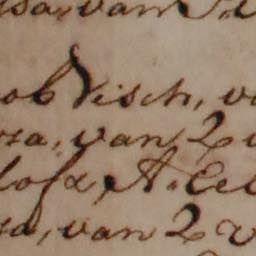 sa, van
ob Visch, v
za, van 2 v
losa, A. Cel
sa, van 2 v